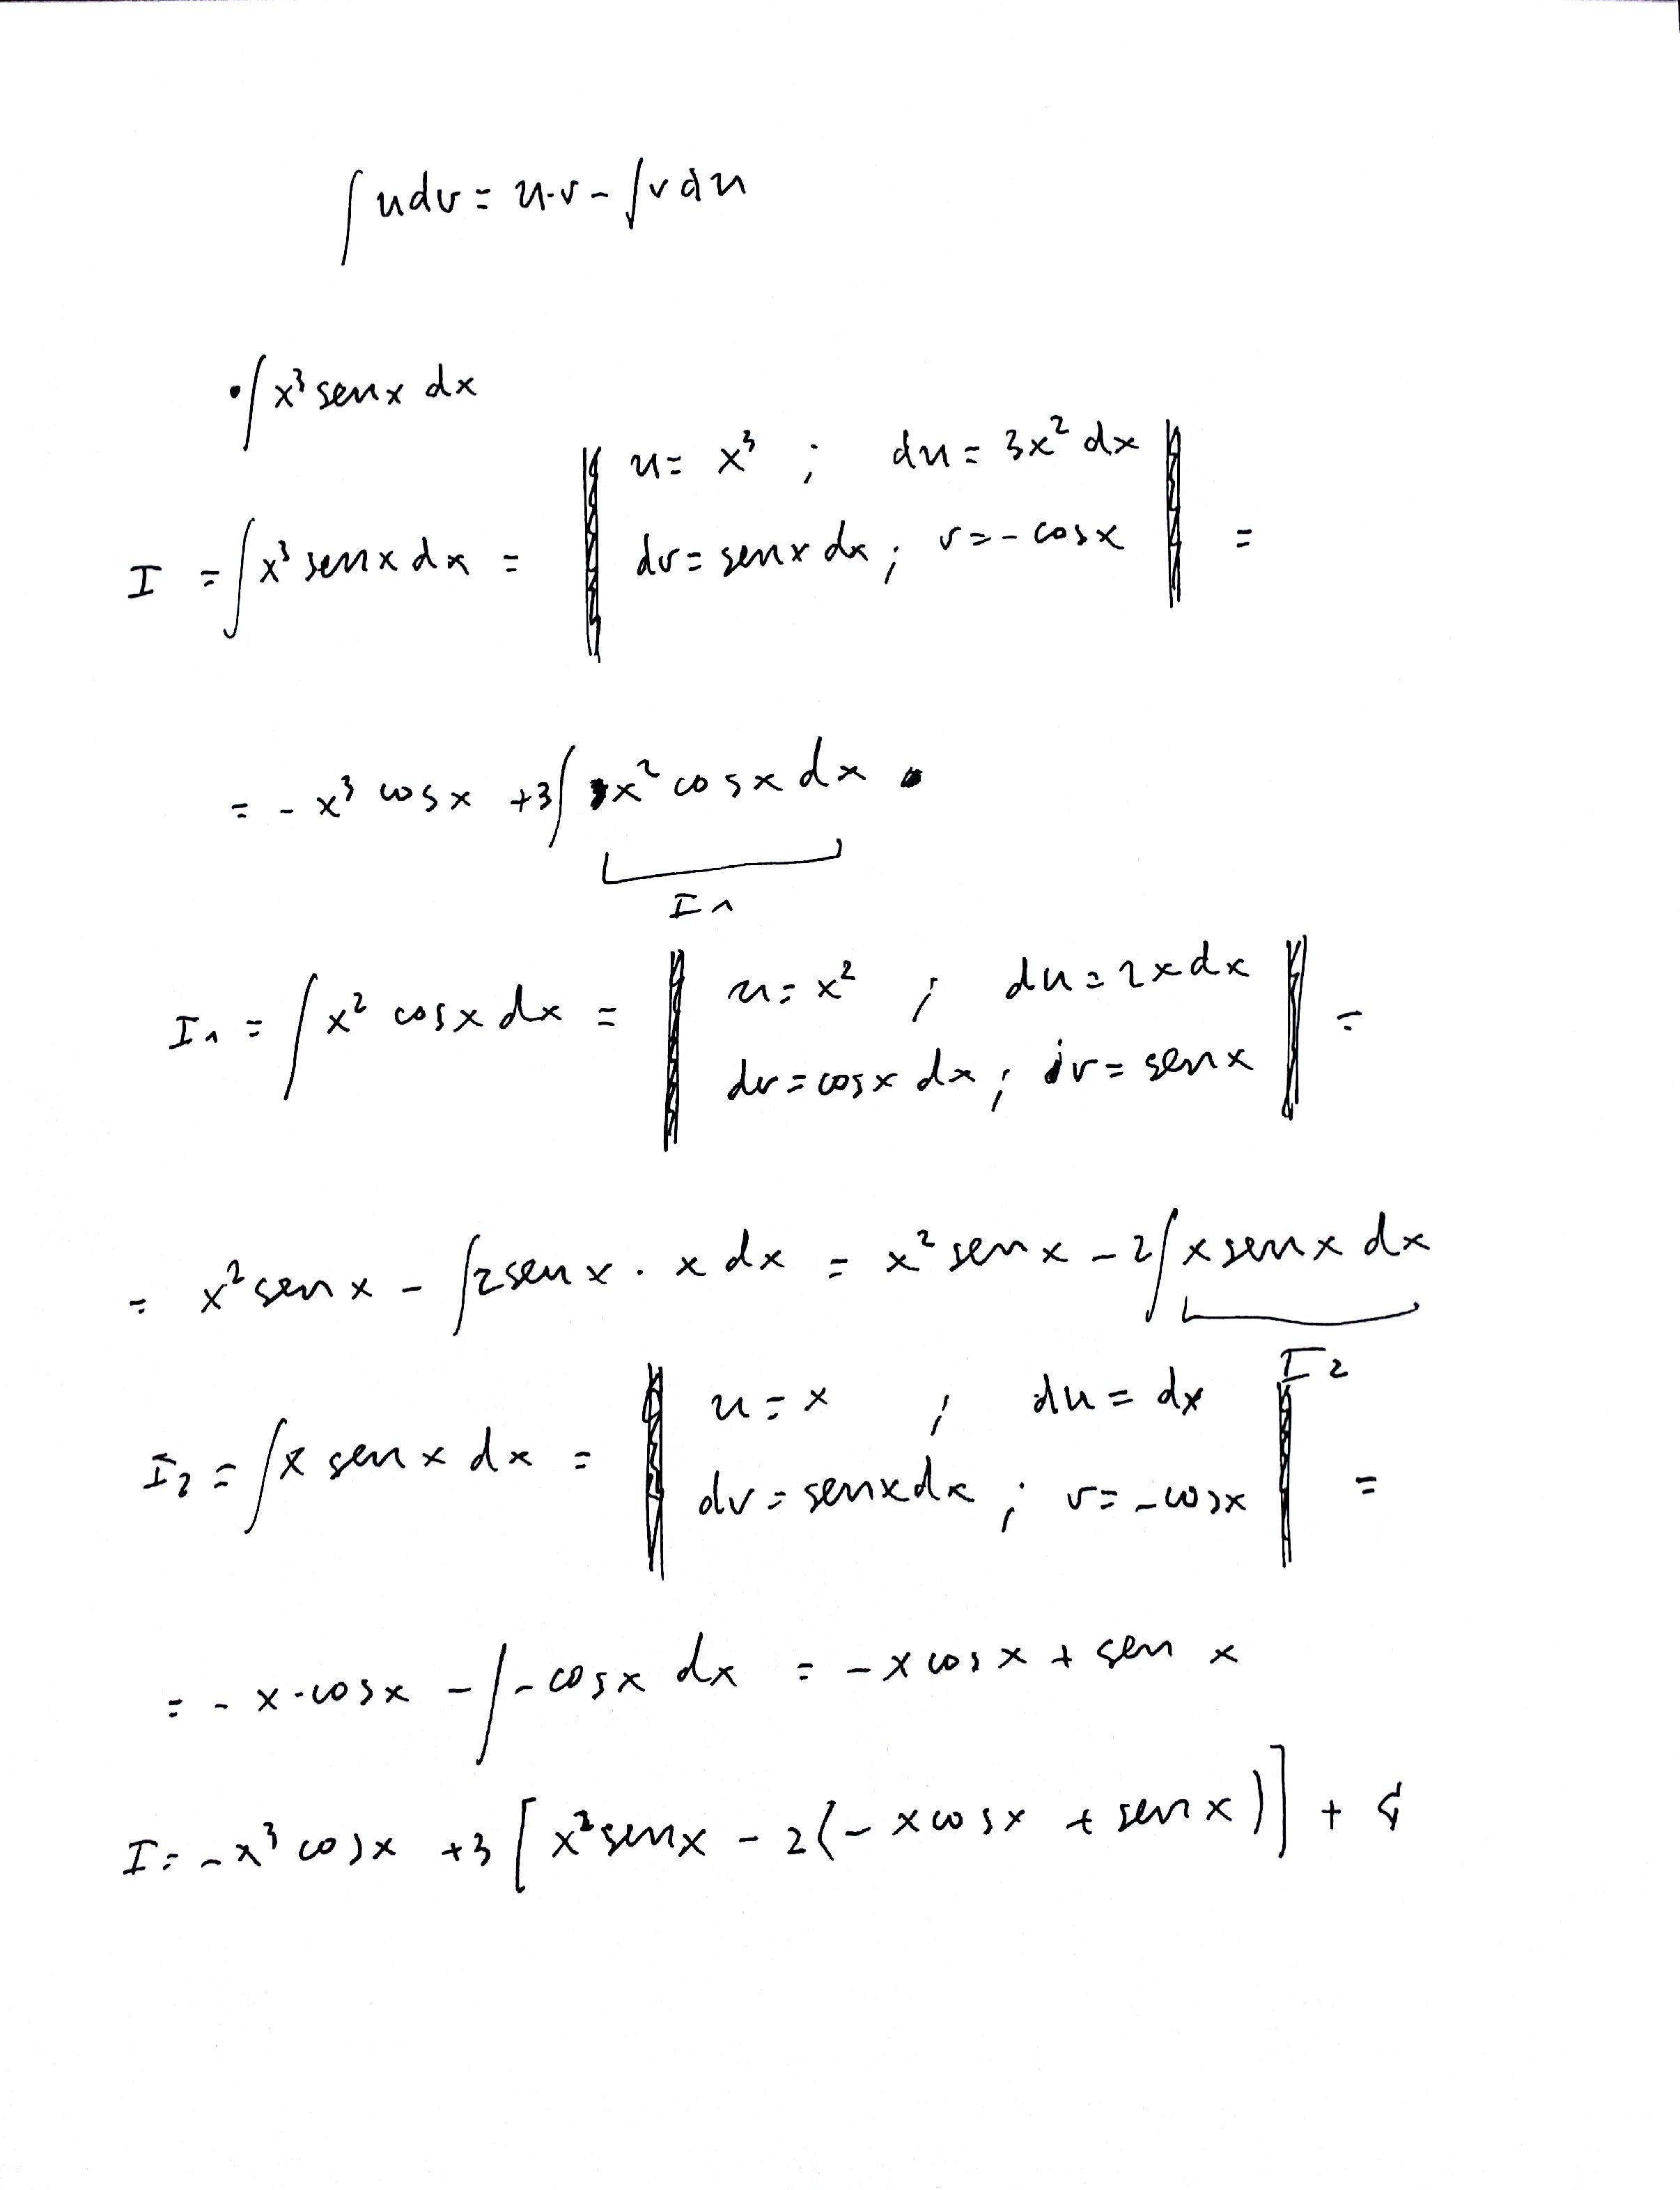 ∫ u dv = u·v - ∫ v du
• ∫ x³ sen x dx
u = x³ ; du = 3x² dx
I = ∫ x³ sen x dx = ‖ dv = sen x dx ; v = - cos x ‖ =
= - x³ cos x + 3 ∫ x² cos x dx
I₁
u = x² ; du = 2x dx
I₁ = ∫ x² cos x dx = ‖ dv = cos x dx ; v = sen x ‖ =
= x² sen x - ∫ 2 sen x · x dx = x² sen x - 2 ∫ x sen x dx
I₂
u = x ; du = dx
I₂ = ∫ x sen x dx = ‖ dv = sen x dx ; v = - cos x ‖ =
= - x · cos x - ∫ - cos x dx = - x cos x + sen x
I = - x³ cos x + 3 [ x² sen x - 2 ( - x cos x + sen x ) ] +